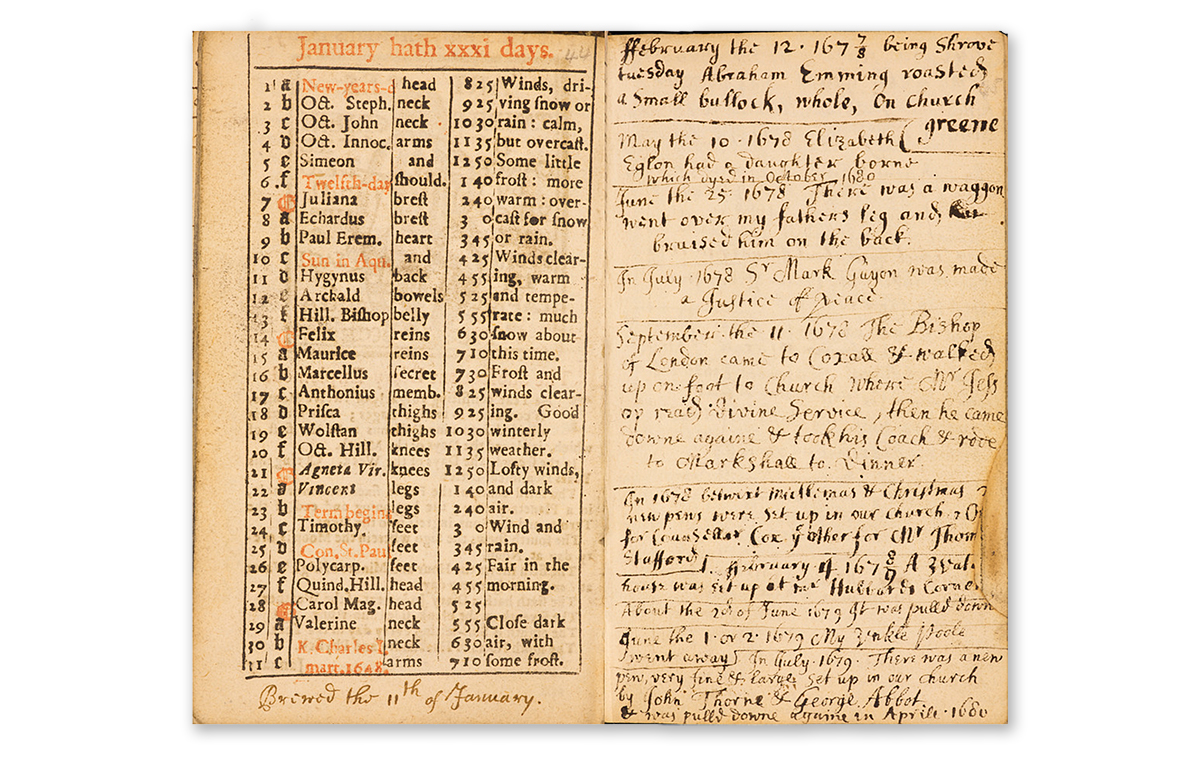 January hath xxxi days. 44
1 a New-years-d head 8 25 Winds, dri-
2 b Oct. Steph. neck 9 25 ving snow or
3 c Oct. John neck 10 30 rain: calm,
4 d Oct. Innoc. arms 11 35 but overcast.
5 e Simeon and 12 50 Some little
6 f Twelfth-day should. 1 40 frost: more
7 Juliana brest 2 40 warm: over-
8 a Echardus brest 3 0 cast for snow
9 b Paul Erem. heart 3 45 or rain.
10 c Sun in Aqu. and 4 25 Winds clear-
11 d Hygynus back 4 55 ing, warm
12 e Archald bowels 5 25 and tempe-
13 f Hill. Bishop belly 5 55 rate: much
14 Felix reins 6 30 snow about
15 a Maurice reins 7 10 this time.
16 b Marcellus secret 7 30 Frost and
17 c Anthonius memb. 8 25 winds clear-
18 d Prisca thighs 9 25 ing. Good
19 e Wolstan thighs 10 30 winterly
20 f Oct. Hill. knees 11 35 weather.
21 Agneta Vir. knees 12 50 Lofty winds,
22 a Vincent legs 1 40 and dark
23 b Term begins legs 2 40 air.
24 c Timothy. feet 3 0 Wind and
25 d Con. St. Pau feet 3 45 rain.
26 e Polycarp. feet 4 25 Fair in the
27 f Quind. Hill. head 4 55 morning.
28 Carol Mag. head 5 25
29 a Valerine neck 5 55 Close dark
30 b K. Charles I. neck 6 30 air, with
31 c mart. 1648. arms 7 10 some frost.
Brewed the 11th of January.
ffebruary the 12 · 167 7/8 being Shrove
tuesday Abraham Emming roasted
a Small bullock, whole, On Church
greene
May the 10 · 1678 Elizabeth
Eglon had a daughter borne
which dyed in October 1680
June the 25 · 1678 There was a waggon
went over my fathers leg and
bruised him on the back.
In July · 1678 Sr Mark Guyon was made
a Justice of peace
September · the 11 · 1678 The Bishop
of London came to Coxall & walked
up on foot to Church where Mr Jess
op read divine Service, then he came
downe againe & took his Coach & rode
to Markshall to Dinner
In 1678 betwixt Micklemas & Christmas 2
new pens were set up in our church,
for Counsellar Cox, ye other for Mr Thom
Stafford. ffebruary 4 167 8/9 A
house was set up at Hubbards
About the 2d of June 1679 It was pulled down
June the 1 or 2 · 1679 My Unkle Poole
went away. In July · 1679 · There was a new
pew, very fine & large, set up in our church
by John Thorne & George Abbot
& was pulled downe againe in Aprill · 1680